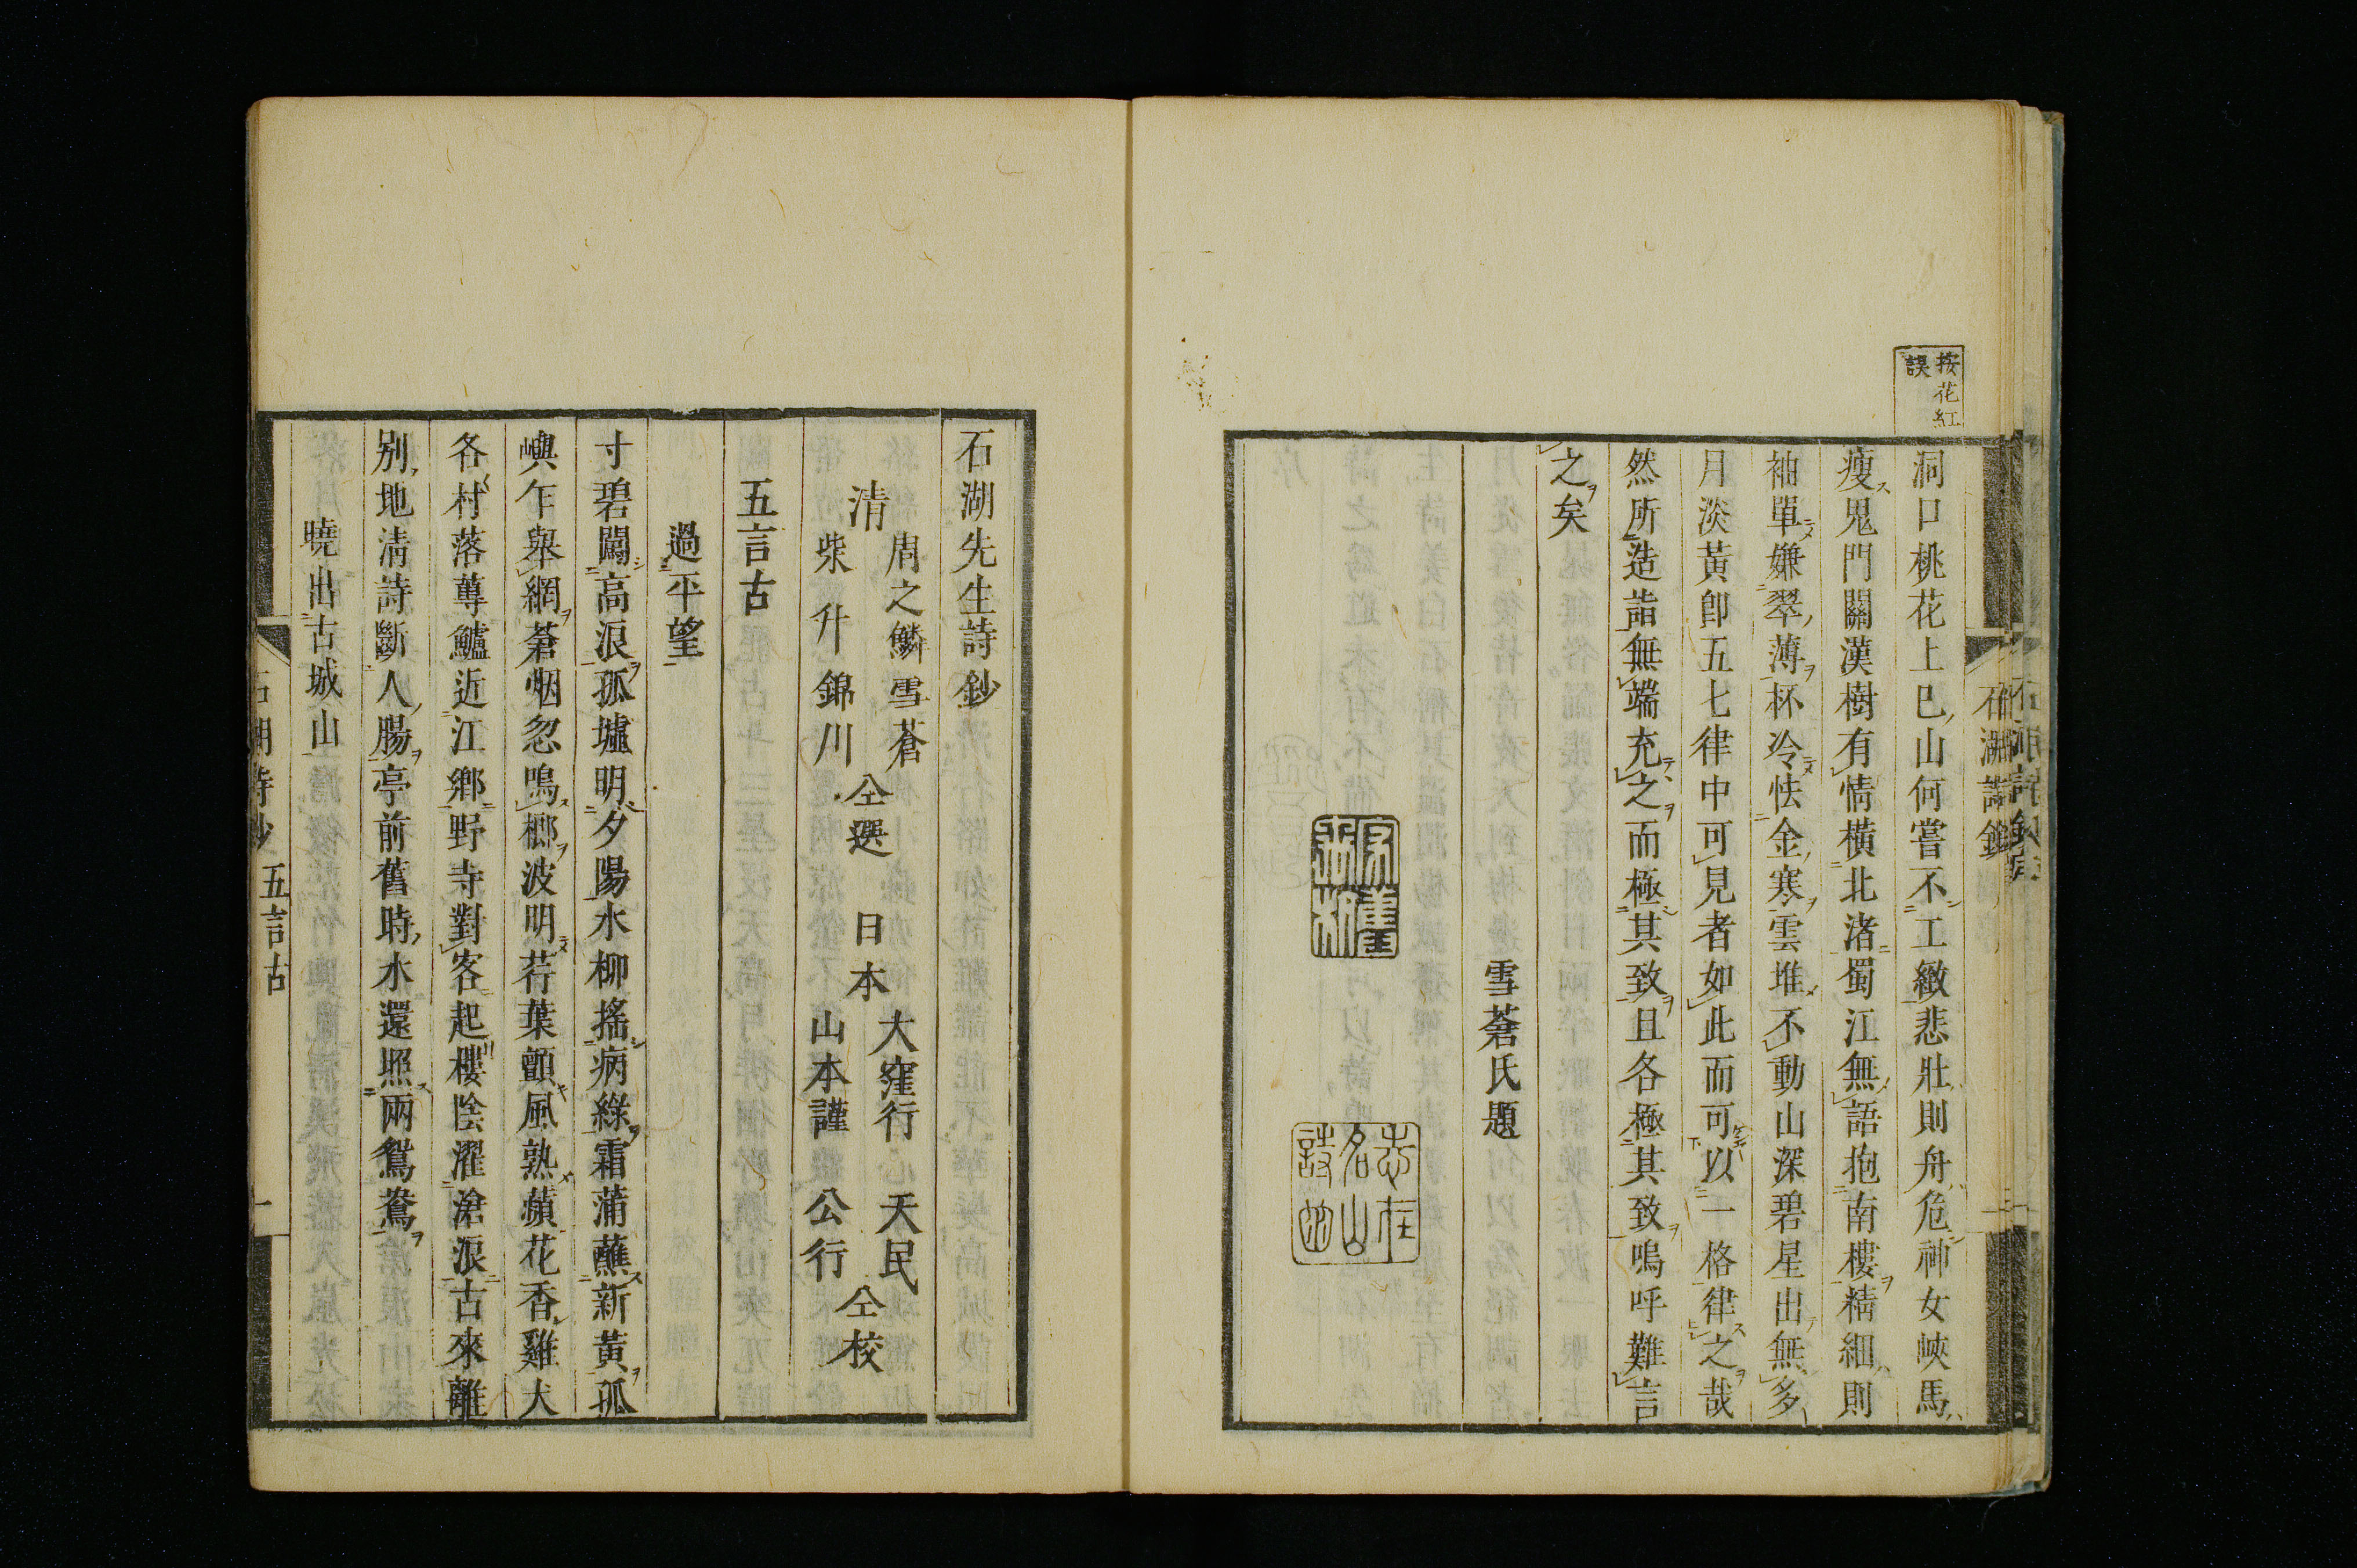 按花紅
誤
洞口桃花上巳山何嘗不工緻悲壯則舟危神女峽馬
瘦鬼門關漢樹有情橫北渚蜀江無語抱南樓精細則
袖單嫌翠薄杯冷怯金寒雲堆不動山深碧星出無多
月淡黃卽五七律中可見者如此而可以一格律之哉
然所造詣無端充之而極其致且各極其致嗚呼難言
之矣
雪蒼氏題
志在
名山
石湖先生詩鈔
清
周之鱗雪蒼
柴升錦川
仝選
日本
大窪行天民
山本謹公行
仝校
五言古
過平望
寸碧闖高浪孤墟明夕陽水柳搖病綠霜蒲蘸新黃孤
嶼乍舉網蒼烟忽鳴榔波明荇葉顫風熟蘋花香雞犬
各村落蓴鱸近江鄉野寺對客起樓陰濯滄浪古來離
別地淸詩斷人腸亭前舊時水還照兩鴛鴦
曉出古城山
石湖詩鈔 五言古 一